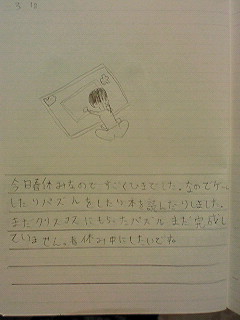 3 10
今日春休みなので、すごくひまでした。なのでゲー
したりパズルをしたり本を読したりしました。
まだクリスマスにもらったパズルまだ完成し
ていません。春休み中にしたいでね